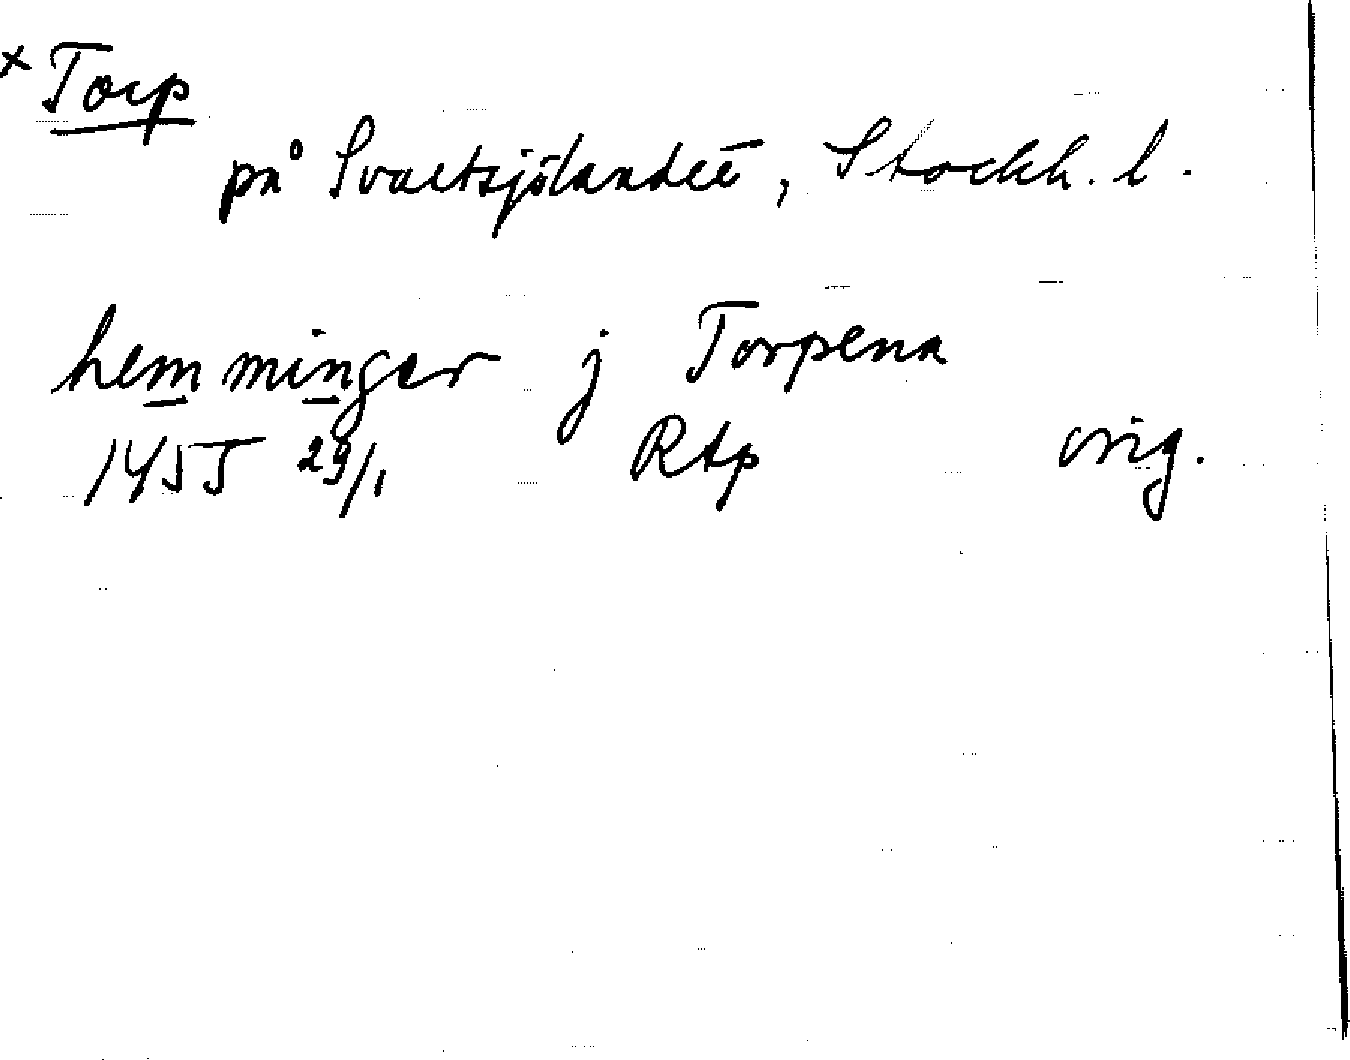 × Torp
på Svartsjölandet, Stockh. l.
hemminger j Torpena
1455 29/1 Rap orig.